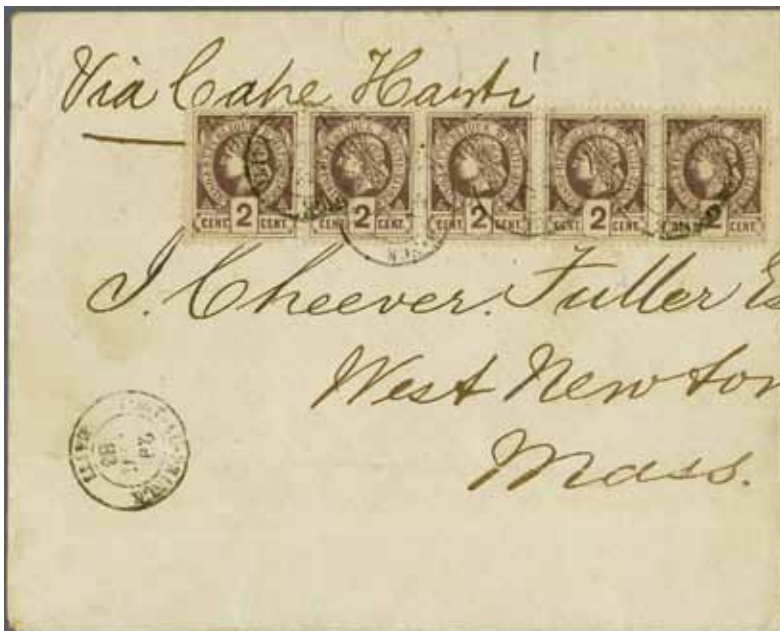 Via Cape Hayti
CENT 2 CENT. CENT 2 CENT. CENT 2 CENT. CENT 2 CENT. 2 CENT.
J. Cheever. Fuller Es
West Newton
Mass.
HAITI
83